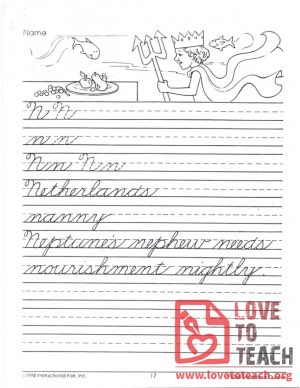 Name
N N
n n
Nn Nn
Netherlands
nanny
Neptune's nephew needs
nourishment nightly.
LOVE
TO
TEACH
©1994 Instructional Fair, Inc.
17
www.lovetoteach.org